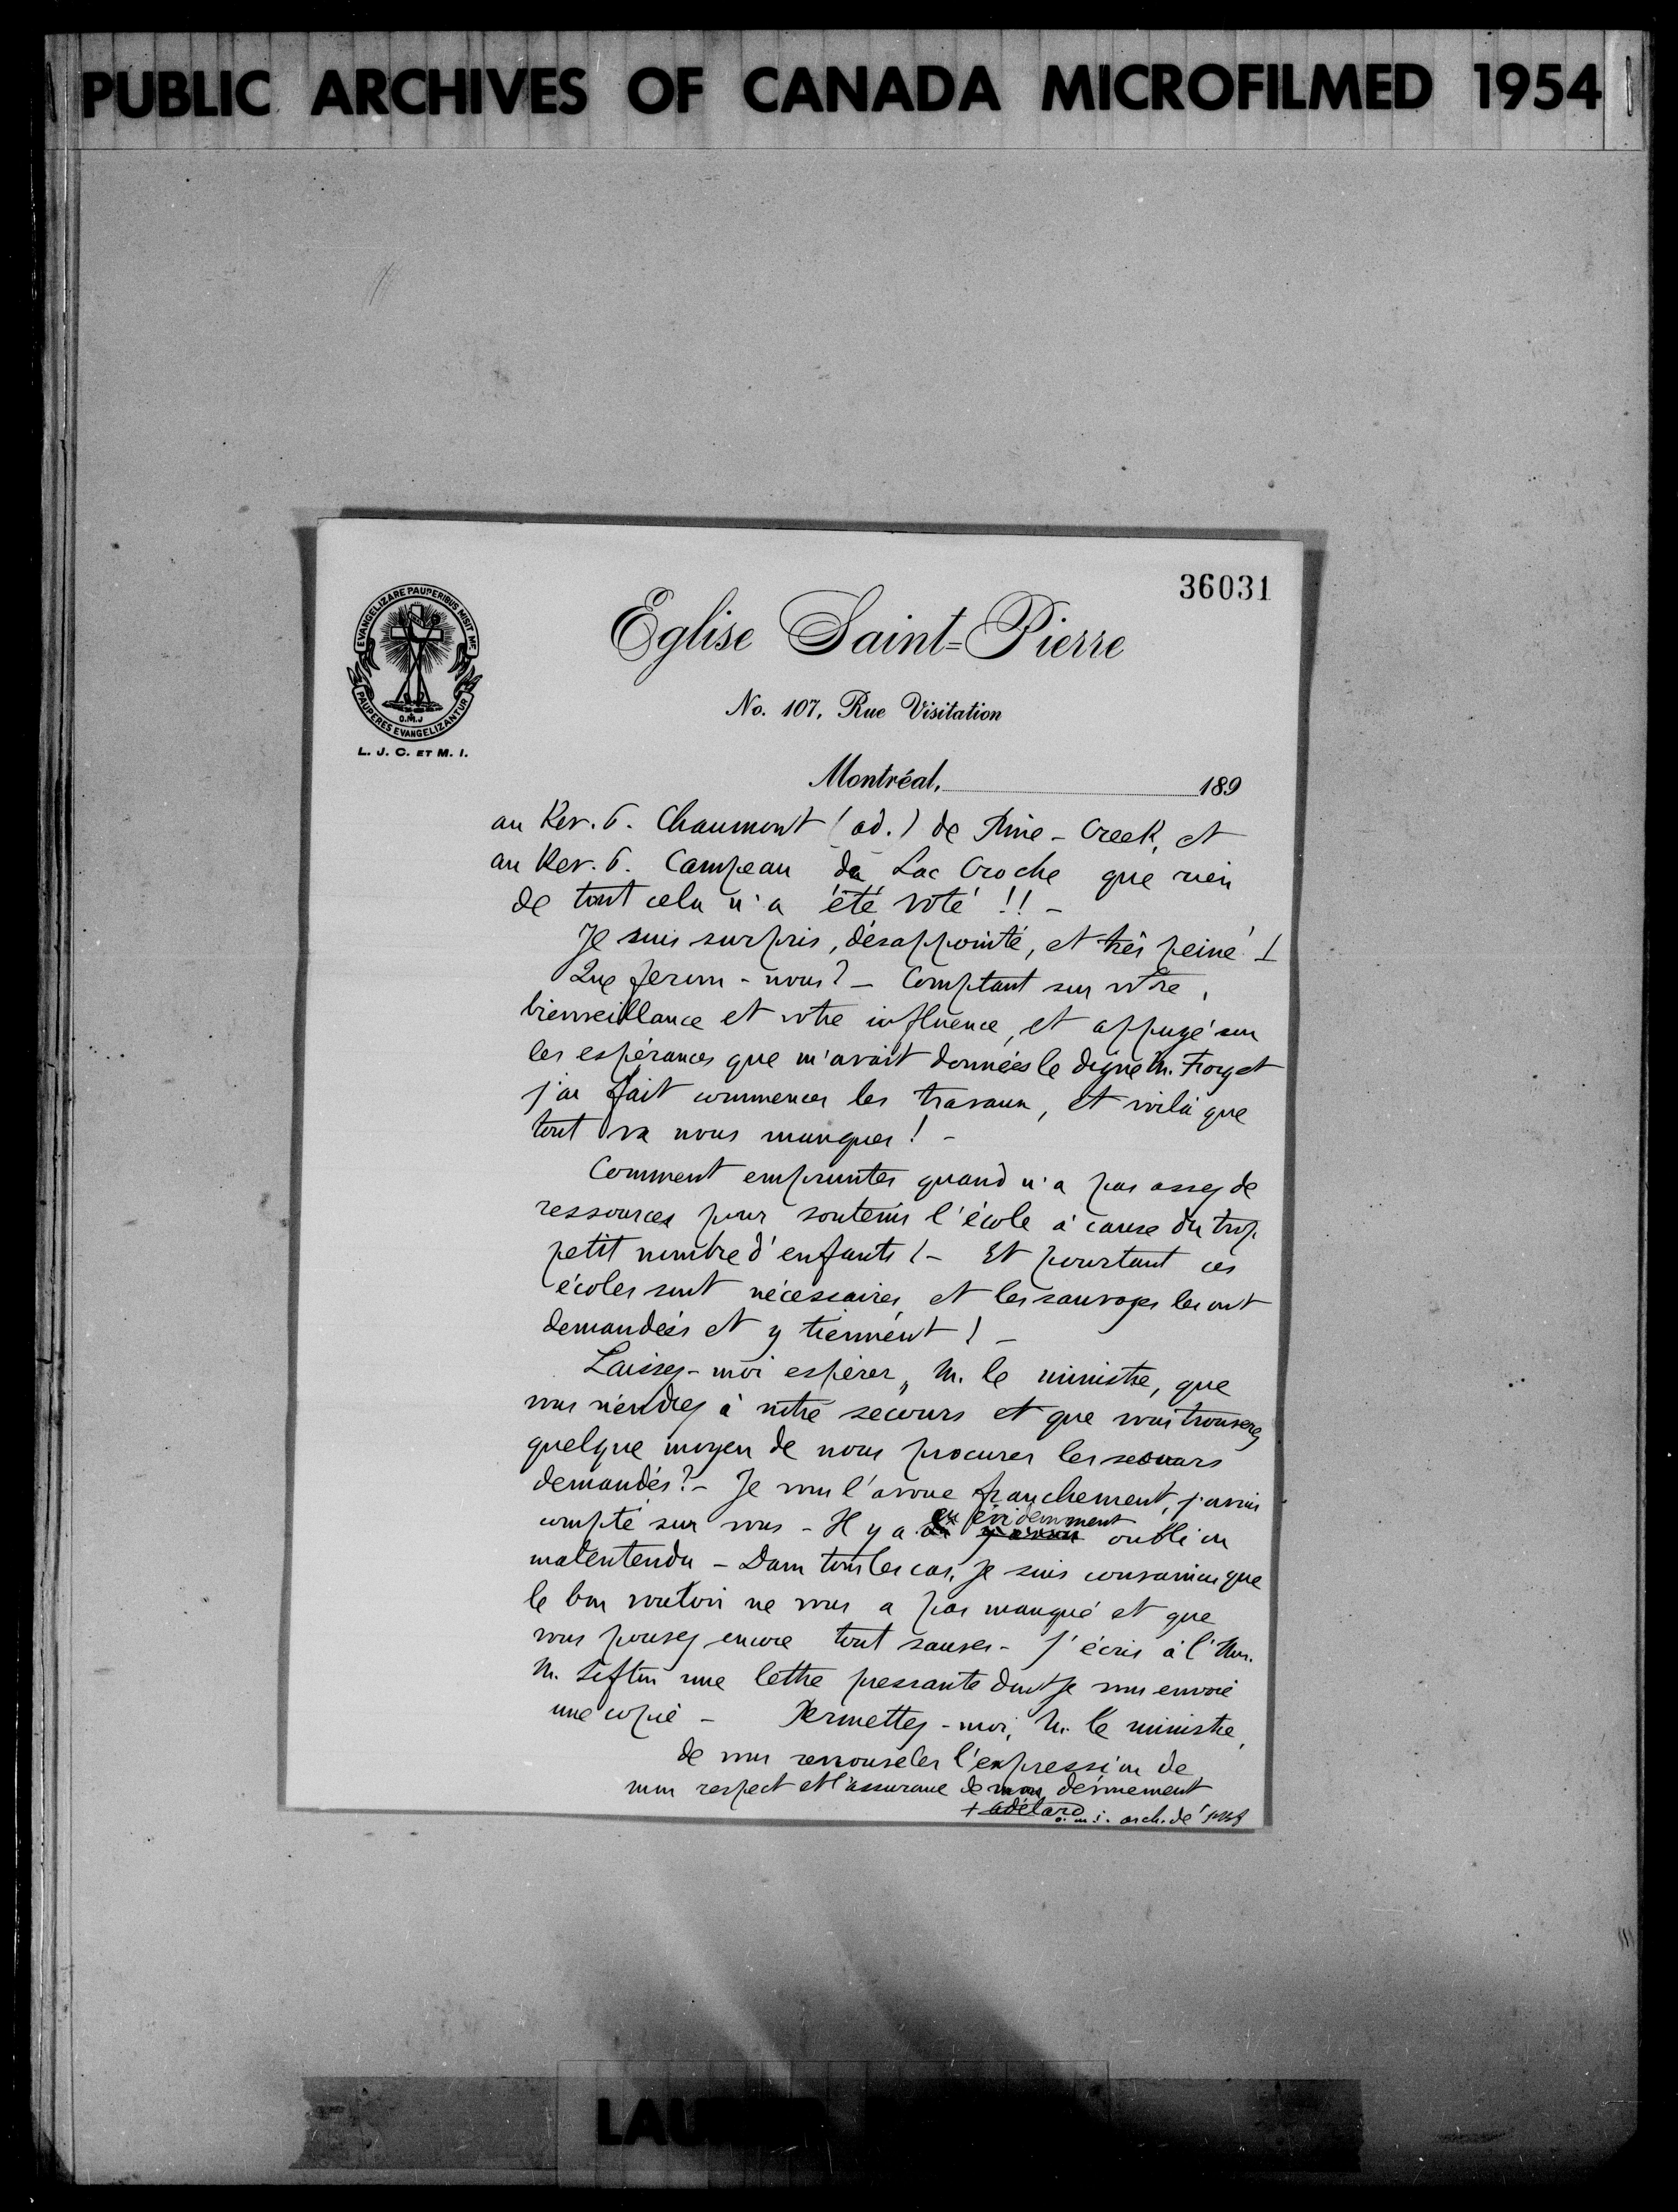 PUBLIC ARCHIVES OF CANADA MICROFILMED 1954
36031
EVANGELIZARE PAUPERIBUS MISIT ME
O.M.J
PAUPERES EVANGELIZANTUR
L. J. C. ET M. I.
Eglise Saint=Pierre
No. 107, Rue Visitation
Montréal, 189
au Rev. P. Chaumont (ad.) de Pine-Creek, et
au Rev. P. Campeau du Lac Croche que rien
de tout cela n'a été voté !! -
Je suis surpris, désappointé, et très peiné !
Que ferons-nous? - Comptant sur votre
bienveillance et votre influence, et appuyé sur
les espérances que m'avait données le digne M. Forget
j'ai fait commencer les travaux, et voilà que
tout va nous manquer! -
Comment emprunter quand n'a pas assez de
ressources pour soutenir l'école à cause du trop
petit nombre d'enfants! - Et pourtant ces
écoles sont nécessaires, et les sauvages les ont
demandées et y tiennent! -
Laissez-moi espérer, M. le ministre, que
vous viendrez à notre secours et que vous trouverez
quelque moyen de nous procurer les secours
demandés? - Je vous l'avoue franchement, j'avais
compté sur vous - Il y a eu évidemment oubli ou
malentendu - Dans tous les cas, je suis convaincu que
le bon vouloir ne vous a pas manqué et que
vous pouvez encore tout sauver - J'écris à l'Hon.
M. Sifton une lettre pressante dont je vous envoie
une copie - Permettez-moi, M. le ministre,
de vous renouveler l'expression de
mon respect et l'assurance de mon dévouement
+ Adélard o.m.i. arch. de St Bf